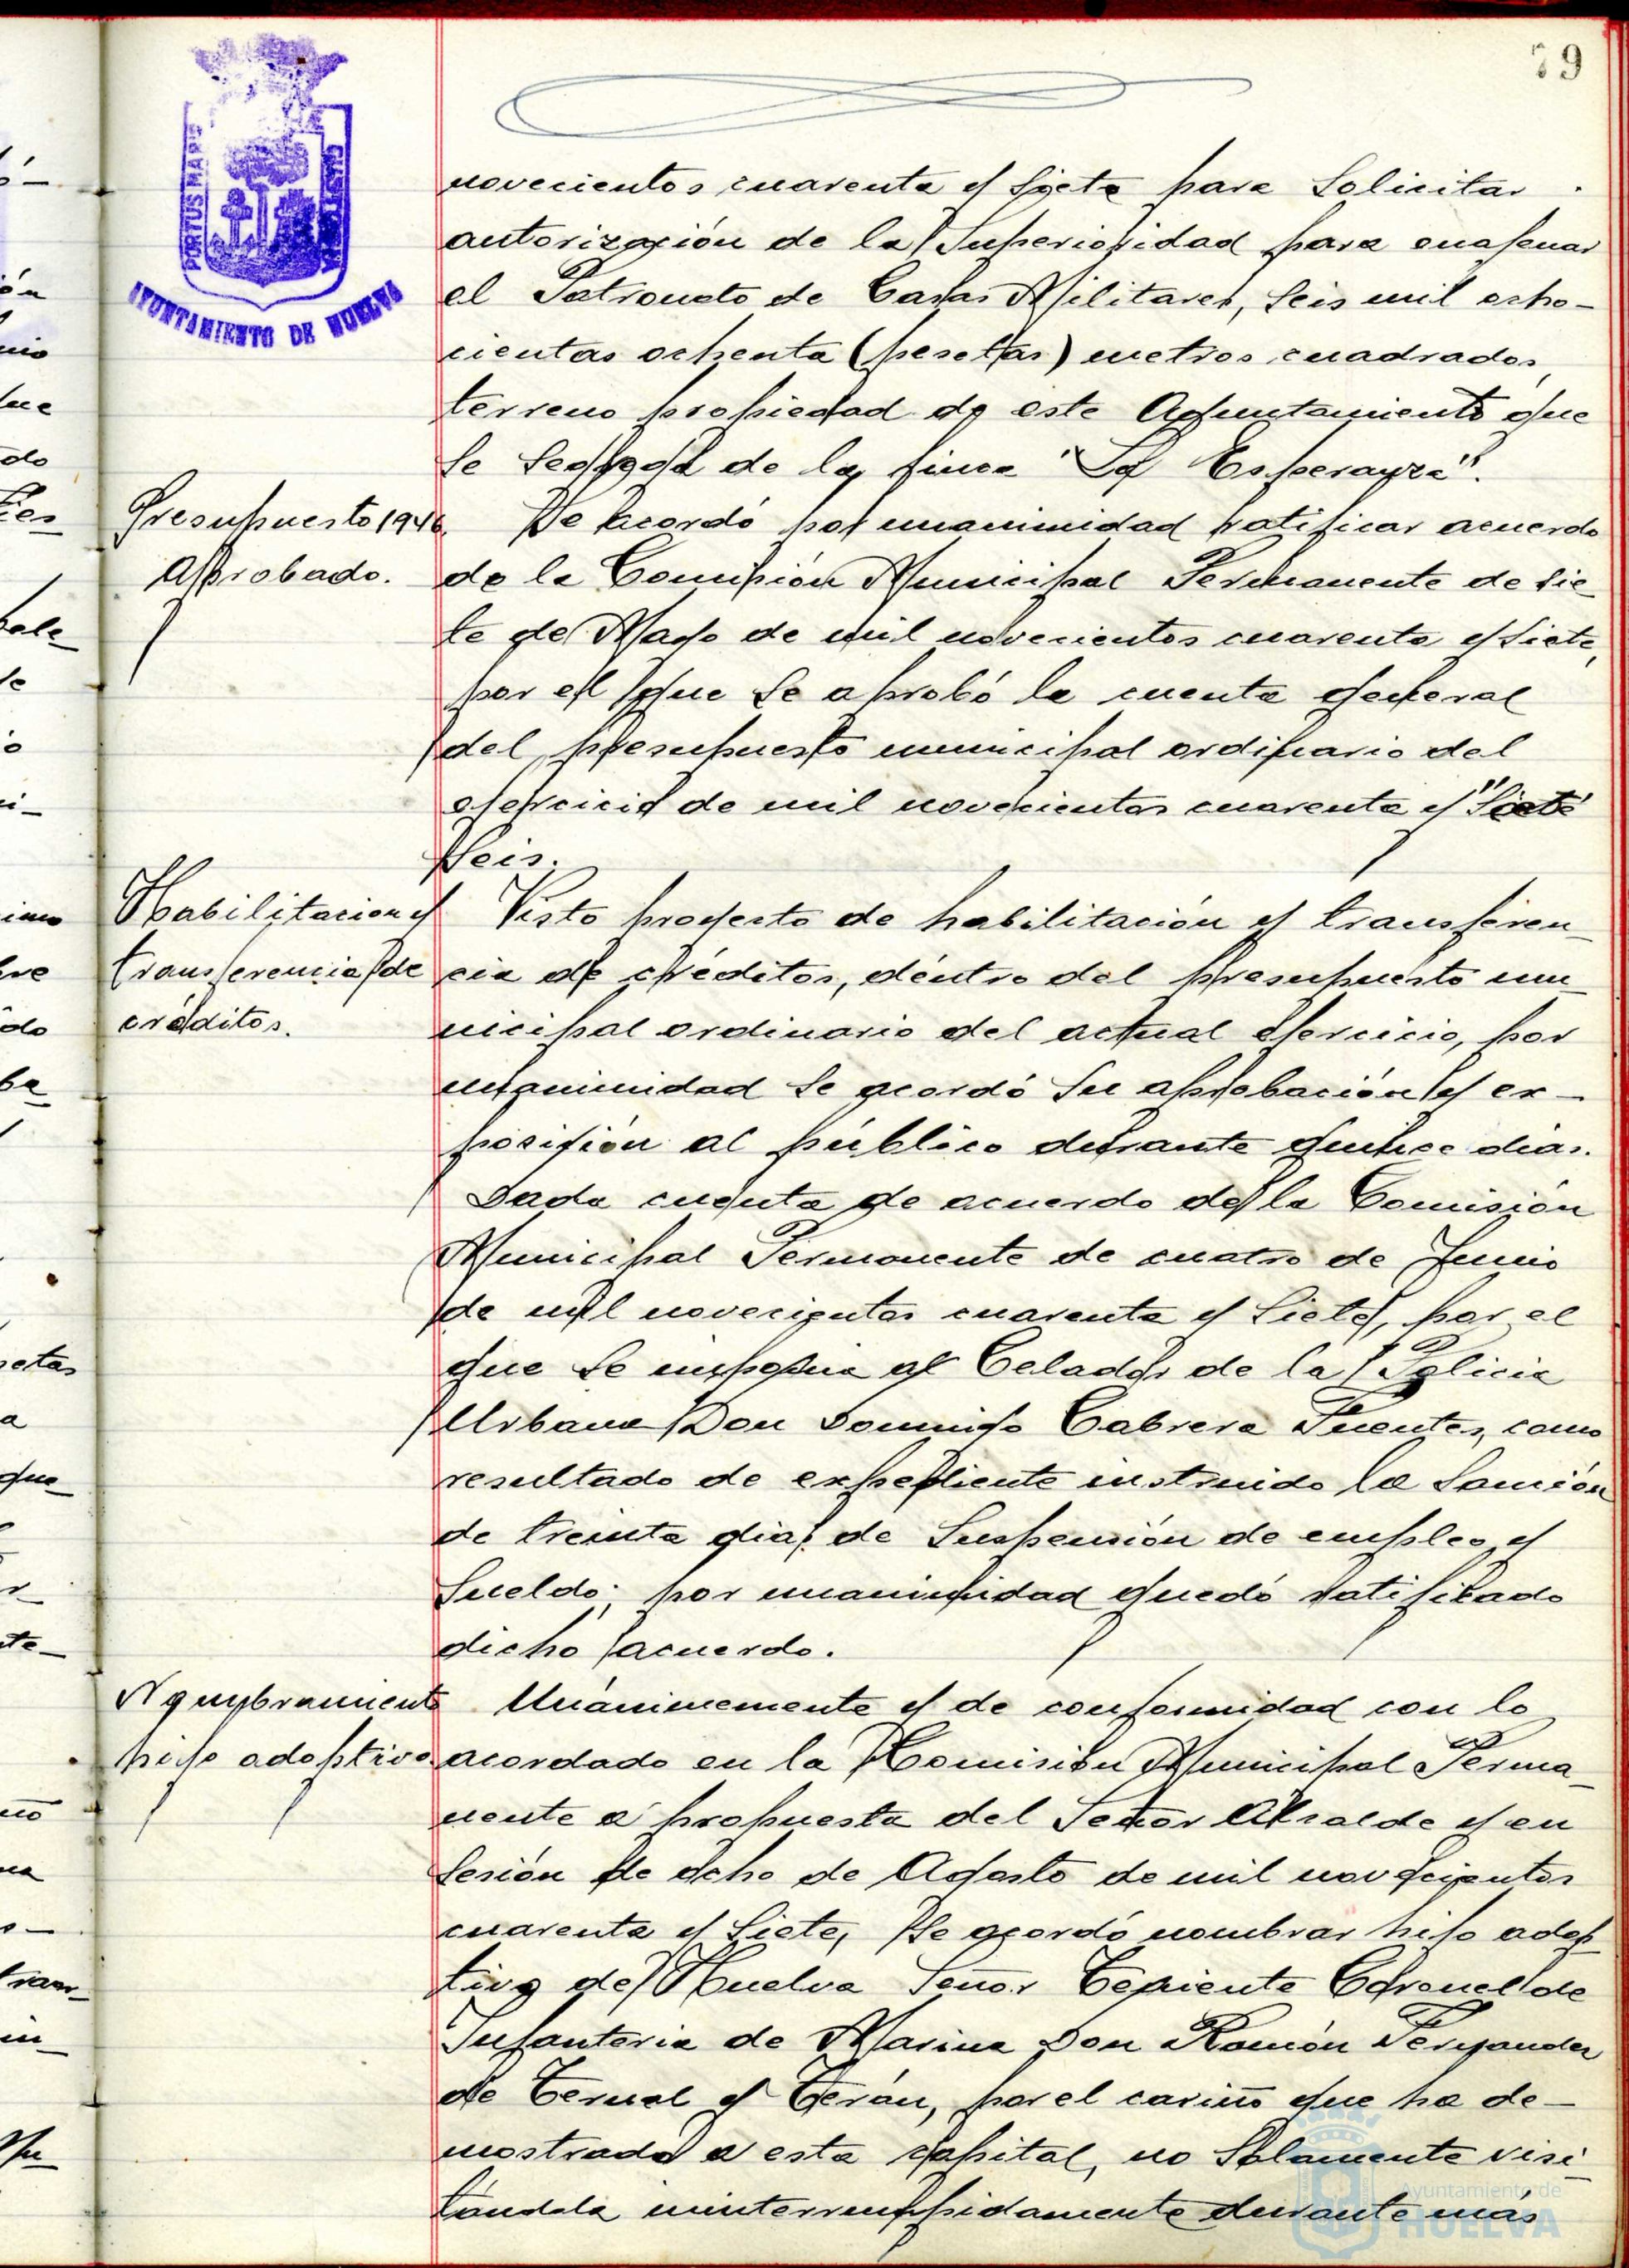 79
PORTUS MARIS
AYUNTAMIENTO DE HUELVA
novecientos cuarenta y siete para solicitar
autorización de la Superioridad para enajenar
el Patronato de Casas Militares, seis mil ocho-
cientas ochenta (pesetas) metros cuadrados,
terreno propiedad de este Ayuntamiento que
se segrega de la finca "La Esperanza".
Presupuesto 1946.
Aprobado.
Se acordó por unanimidad ratificar acuerdo
de la Comisión Municipal Permanente de sie
te de Mayo de mil novecientos cuarenta y siete,
por el que se aprobó la cuenta general
del presupuesto municipal ordinario del
ejercicio de mil novecientos cuarenta y "siete"
seis.
Habilitacion y
transferencia de
créditos.
Visto proyecto de habilitación y transferen-
cia de créditos, dentro del presupuesto mu-
nicipal ordinario del actual ejercicio, por
unanimidad se acordó su aprobación y ex-
posición al público durante quince dias.
Dada cuenta de acuerdo de la Comisión
Municipal Permanente de cuatro de Junio
de mil novecientos cuarenta y siete, por el
que se imponia al Celador de la Policia
Urbana Don Domingo Cabrera Fuentes, como
resultado de expediente instruido la sanción
de treinta dias de suspensión de empleo y
sueldo; por unanimidad quedó ratificado
dicho acuerdo.
Nombramiento
hijo adoptivo
Unánimemente y de conformidad con lo
acordado en la Comisión Municipal Perma-
nente a propuesta del Señor Alcalde y en
sesión de ocho de Agosto de mil novecientos
cuarenta y siete, se acordó nombrar hijo adop
tivo de Huelva Señor Teniente Coronel de
Infanteria de Marina Don Ramón Fernandez
de Teruel y Terán, por el cariño que ha de-
mostrado a esta capital, no solamente visi-
tándola ininterrumpidamente durante más
Ayuntamiento de
HUELVA